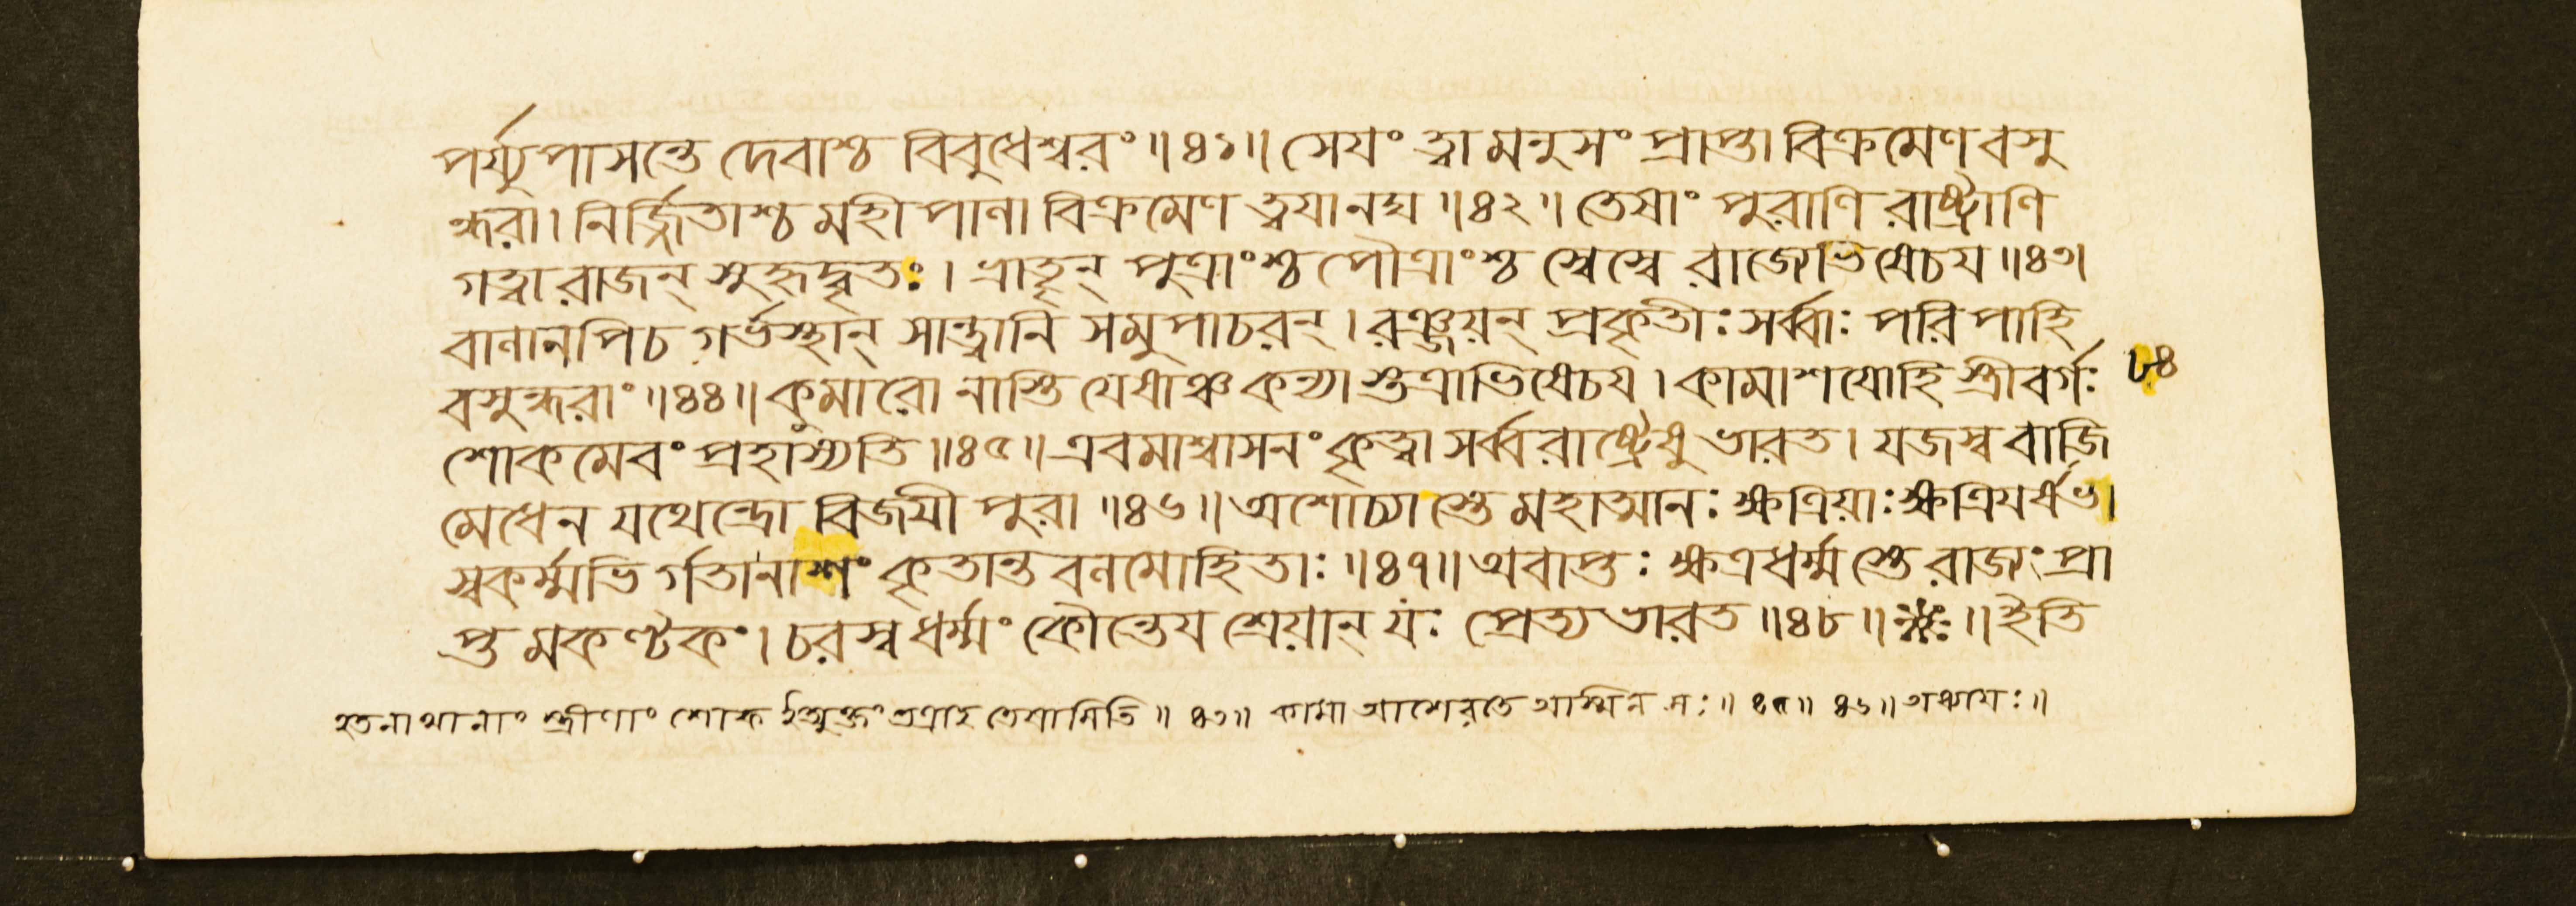 পর্য্যুপাসন্তে দেবাশ্চ বিবুধেশ্বরং॥৪১॥ সেযং ত্বামনুসংপ্রাপ্তা বিক্রমেণ বসু
ন্ধরা। নির্জ্জিতাশ্চ মহীপালা বিক্রমেণ ত্বযানঘ॥৪২॥ তেষাং পুরাণি রাষ্ট্রাণি
গত্বা রাজন্ সুহৃদ্বৃতঃ। ভ্রাতৄন্ পুত্রাংশ্চ পৌত্রাংশ্চ স্বে স্বে রাজ্যেভিষেচয॥৪৩।
বালানপি চ গর্ভস্থান্ সান্ত্বানি সমুপাচরন্। রঞ্জয়ন্ প্রকৃতীঃ সর্ব্বাঃ পরিপাহি
বসুন্ধরাং॥৪৪॥ কুমারো নাস্তি যেষাঞ্চ কন্যাস্তত্রাভিষেচয। কামাশযোহি স্ত্রীবর্গঃ
৮৪
শোকমেবং প্রহাস্যতি॥৪৫॥ এবমাশ্বাসনং কৃত্বা সর্ব্বরাষ্ট্রেষু ভারত। যজস্ব বাজি
মেধেন যথেন্দ্রো বিজযী পুরা॥৪৬॥ অশোচ্যাস্তে মহাত্মানঃ ক্ষত্রিয়াঃ ক্ষত্রিযর্ষভ।
স্বকর্ম্মভির্গতা নাশং কৃতান্তবলমোহিতাঃ॥৪৭॥ অবাপ্তঃ ক্ষত্রধর্ম্মস্তে রাজ্যং প্রা
প্তমকণ্টকং। চরস্ব ধর্ম্মং কৌন্তেয শ্রেয়ান্ যঃ প্রেত্য ভারত॥৪৮॥ ইতি
হতনাথানাং স্ত্রীণাং শোক তত্রাহ তেষামিতি॥ ৪৩॥ কামা আশেরতে অস্মিন্ সঃ॥ ৪৫॥ ৪৬॥